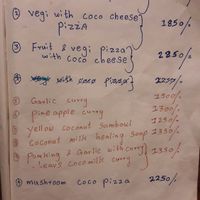 ② vegi with coco cheese
PIZZA 1850/-
③ Fruit & vegi pizza
with coco cheese 2850/-
④ with coco 2250/-
① Garlic curry 1500/-
② pine apple curry
③ Yellow coconut sambowl
④ Coconut milk healing soup 2350/-
pumking & Garlic with curry
Leavs Coco milk curry 1350/-
④ mushroom coco pizza 2250/-